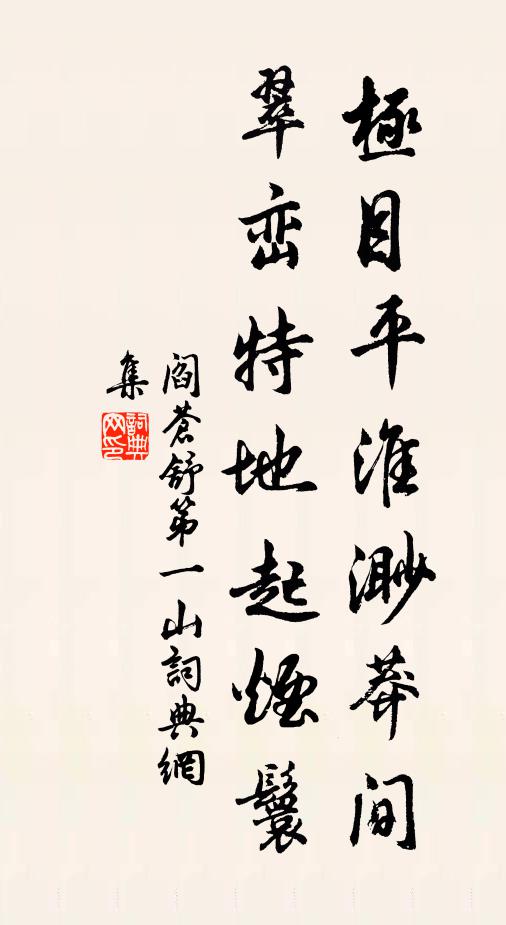 極目平淮渺莽間
翠峦特地起煙鬟
閻蒼舒第一山詞典網
集
詞典网印